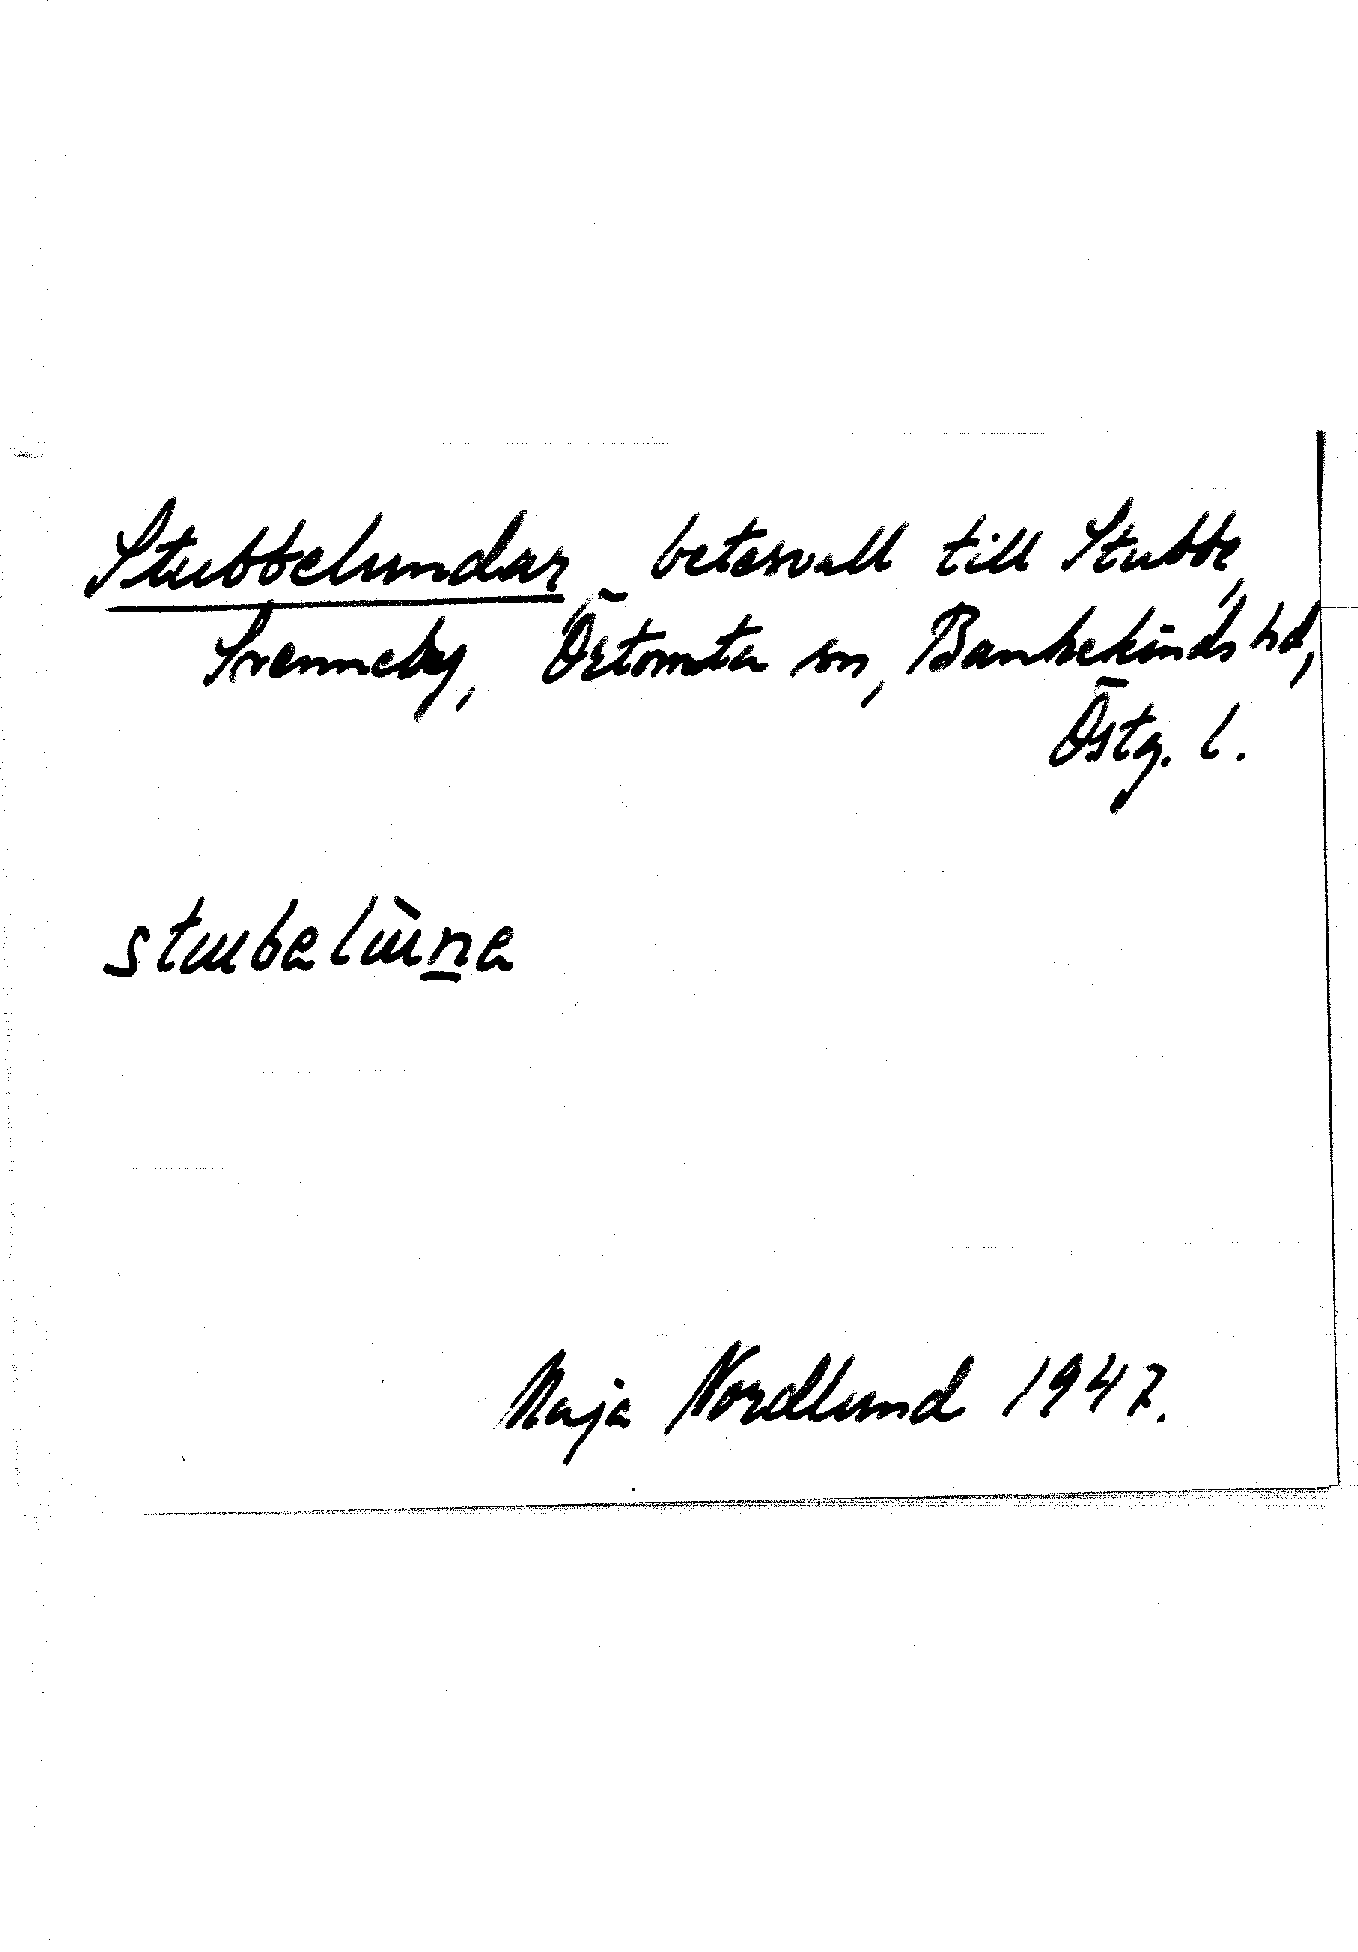 Stubbelundar, betesvall till Stubbe,
Svenneby, Östomta sn, Bankekinds hd,
Östg. l.
stubelùn̲a
Maja Nordlund 1947.